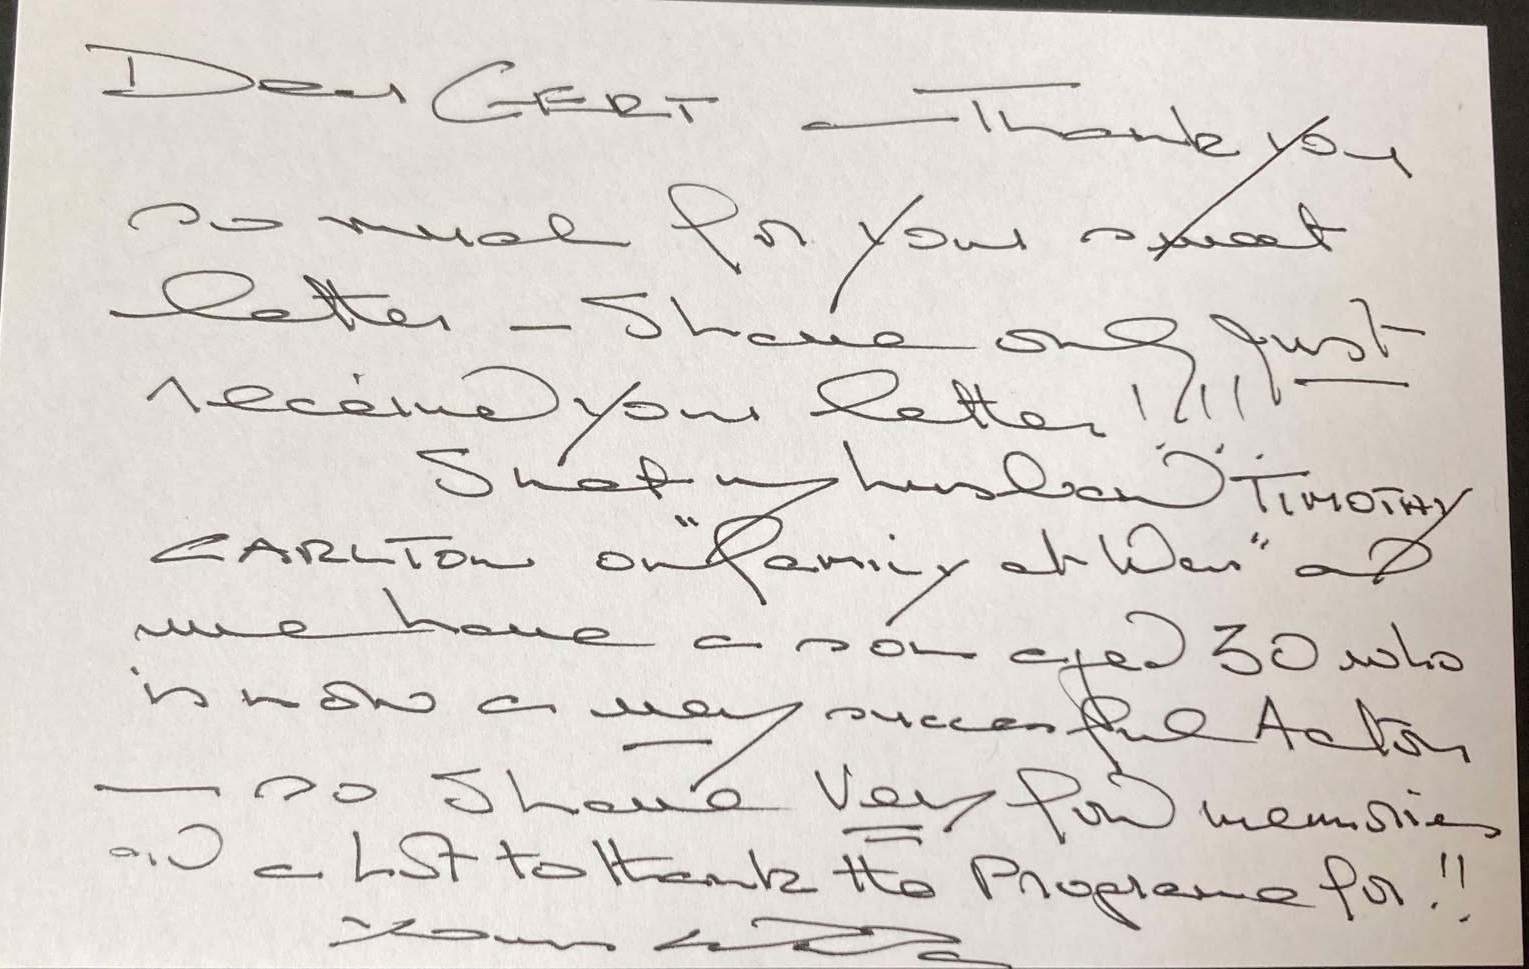 Dear GERT — Thank you
so much for your sweet
letter – I have only just
received your letter !!!!
I met my husband TIMOTHY
CARLTON on "Family at War" and
we have a son aged 30 who
is now a very successful Actor
— so I have very fond memories
and a LOT to thank the Programe for !!
Yours